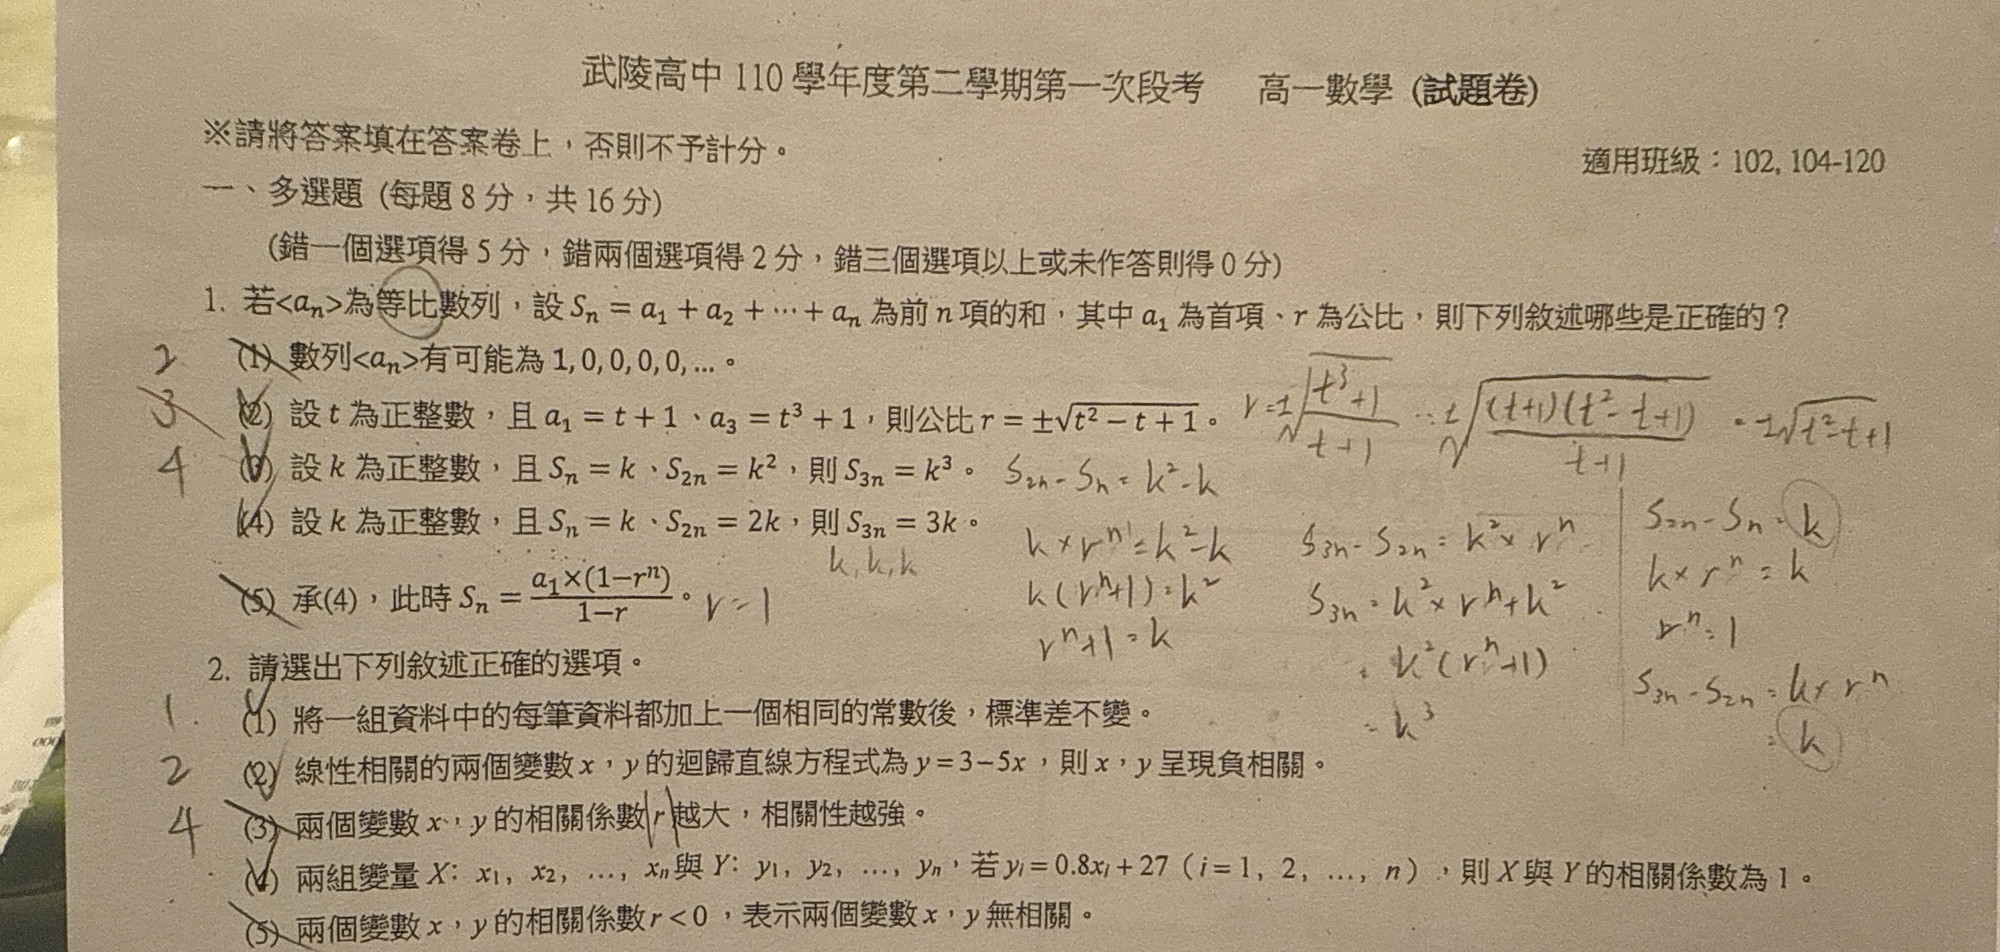 武陵高中 110 學年度第二學期第一次段考 高一數學 (試題卷)
※請將答案填在答案卷上，否則不予計分。
適用班級：102, 104-120
一、多選題 (每題 8 分，共 16 分)
(錯一個選項得 5 分，錯兩個選項得 2 分，錯三個選項以上或未作答則得 0 分)
1. 若<aₙ>為等比數列，設 Sₙ = a₁ + a₂ + ⋯ + aₙ 為前 n 項的和，其中 a₁ 為首項、r 為公比，則下列敘述哪些是正確的？
2 (1) 數列<aₙ>有可能為 1, 0, 0, 0, 0, ...。
3 (2) 設 t 為正整數，且 a₁ = t + 1、a₃ = t³ + 1，則公比 r = ±√(t² − t + 1)。 r = ±√((t³+1)/(t+1)) = ±√((t+1)(t²-t+1)/(t+1)) = ±√(t²-t+1)
4 (3) 設 k 為正整數，且 Sₙ = k、S₂ₙ = k²，則 S₃ₙ = k³。 S₂ₙ - Sₙ = k² - k
(4) 設 k 為正整數，且 Sₙ = k、S₂ₙ = 2k，則 S₃ₙ = 3k。
k, k, k
(5) 承(4)，此時 Sₙ = a₁×(1−rⁿ)/(1−r)。 r = 1
k × rⁿ = k² - k
k(rⁿ+1) = k²
rⁿ+1 = k
S₃ₙ - S₂ₙ = k² × rⁿ
S₃ₙ = k² × rⁿ + k²
= k²(rⁿ+1)
= k³
S₂ₙ - Sₙ = k
k × rⁿ = k
rⁿ = 1
S₃ₙ - S₂ₙ = k × rⁿ
= k
2. 請選出下列敘述正確的選項。
1. (1) 將一組資料中的每筆資料都加上一個相同的常數後，標準差不變。
2 (2) 線性相關的兩個變數 x，y 的迴歸直線方程式為 y = 3−5x，則 x，y 呈現負相關。
4 (3) 兩個變數 x，y 的相關係數|r|越大，相關性越強。
(4) 兩組變量 X: x₁, x₂, …, xₙ 與 Y: y₁, y₂, …, yₙ，若 yᵢ = 0.8xᵢ + 27（i = 1, 2, …, n），則 X 與 Y 的相關係數為 1。
(5) 兩個變數 x，y 的相關係數 r < 0，表示兩個變數 x，y 無相關。